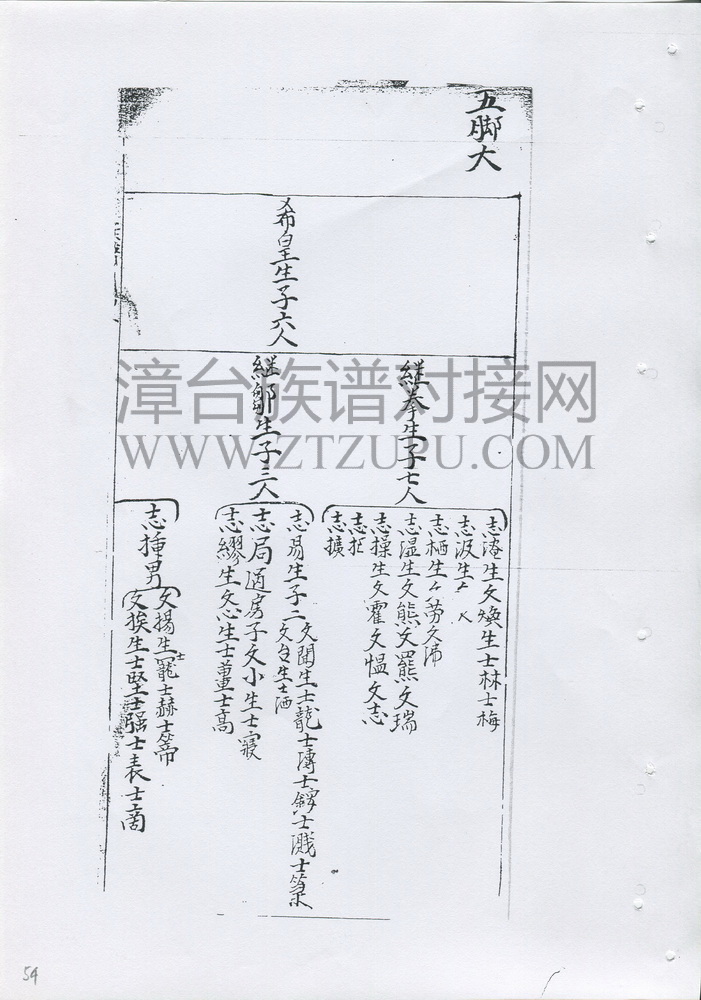 五脚大
希皇生子六人
継奉生子七人
継鄒生子三人
志淹生文煥生士林士梅
志汲生
志栖生文劳文
志湿生文熊文羆文瑞
志操生文霍文愠文志
志拒
志擴
志易生子二文聞生士龍士溥士鐸士濺士策
文台生士洒
志局適房子文小生士寢
志繆生文心生士董士高
志揰男
文揚生士罷士赫士帝
文挨生士堅士强士表士啇
漳台族谱对接网
WWW.ZTZUPU.COM
54